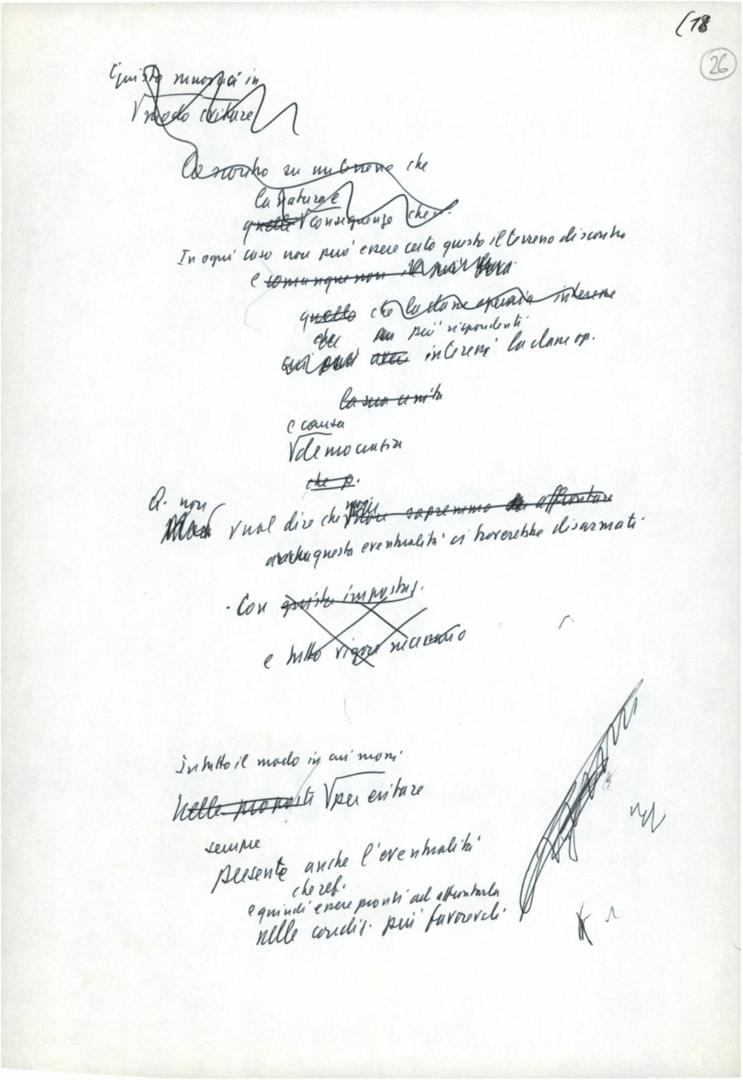 (18
26
in
modo evitare
su un terreno che
la natura e
quelle conseguenze che
In ogni caso non può essere certo questo il terreno di scontro
e comunque non
quello che la classe operaia interesse
che più rispondenti
interessi la classe op.
la sua unità
e causa
democratica
che p.
Q. non
vuol dire che non sapremmo affrontare
questa eventualità ci troverebbe disarmati.
. Con questa impostaz.
e tutto vigore necessario
In tutto il modo in cui mon.
nelle proposti per evitare
sempre
presente anche l'eventualità
che ref.
e quindi essere pronti ad affrontarla
nelle condiz. più favorevoli.